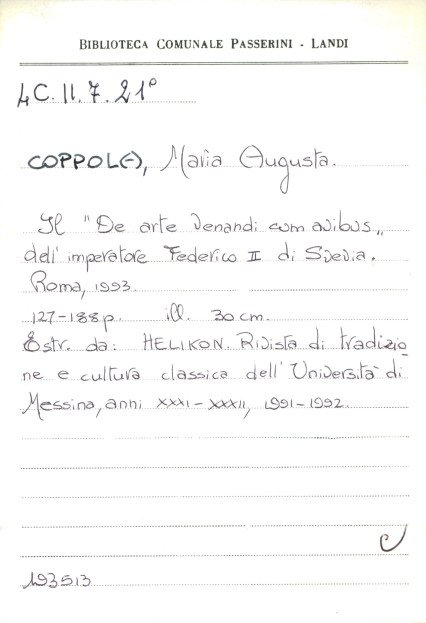 BIBLIOTECA COMUNALE PASSERINI - LANDI
4C.II.7.21°
COPPOLA, Maria Augusta.
Il "De arte venandi cum avibus„
dell'imperatore Federico II di Svevia.
Roma, 1993.
127-188p. ill. 30cm.
Estr. da: HELIKON. Rivista di tradizio
ne e cultura classica dell'Università di
Messina, anni XXXI-XXXII, 1991-1992.
193513